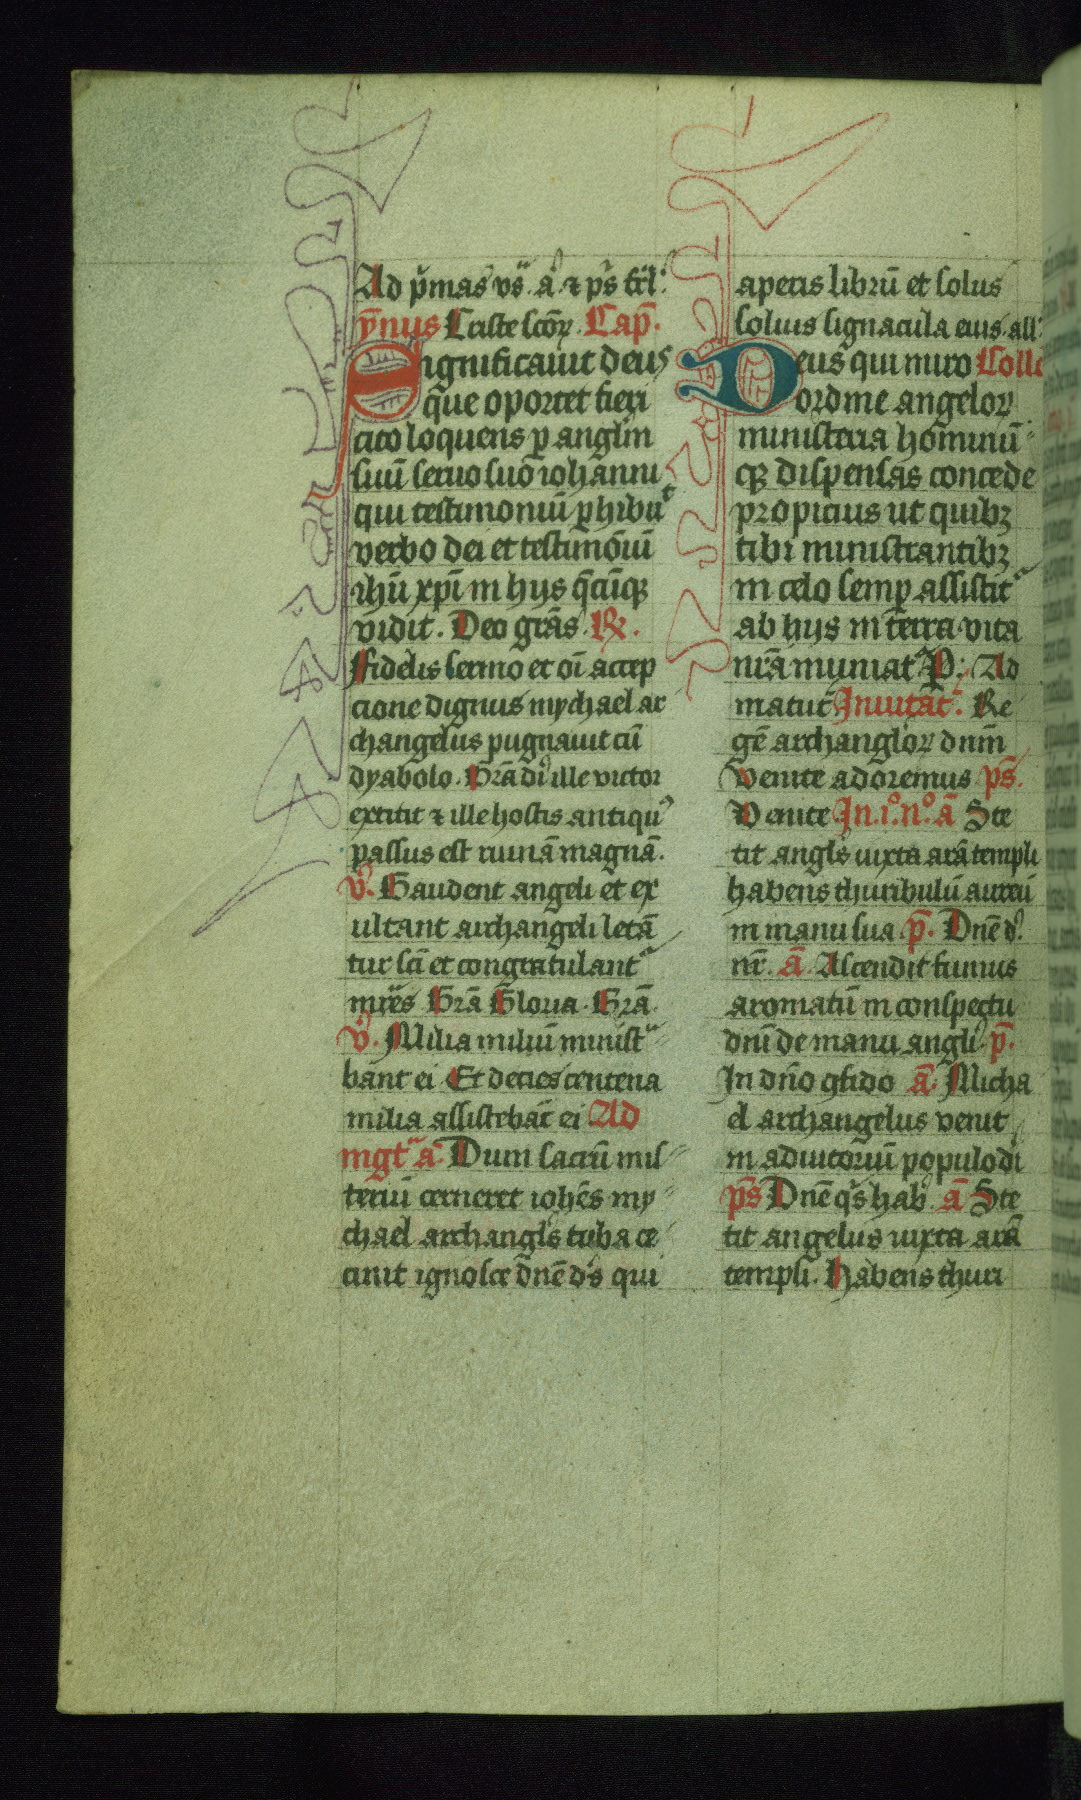 Ad p̄mas vs̄. ā. ⁊ ps̄ fr̄l.
ẏnus Criste scōꝝ. Cap̄.
Significauit deus
que oportet fieri
cito loquens ꝑ angl̄m
suū seruo suo iohanni
qui testimoniū ꝑhibuᵗ
verbo dei et testimōiū
ih̄u xp̄i in hys q̄cūqꝫ
vidit. Deo grās. R̄.
Fidelis sermo et oī accep
cione dignus mychael ar
changelus pugnauit cū
dyabolo. Grā di ille victor
extitit ⁊ ille hostis antiquꝰ
passus est ruinā magnā.
v̄. Gaudent angeli et ex
ultant archangeli letā
tur sc̄i et congratulant
mr̄es Grā Gloria. Grā.
v̄. Milia miliū minist
bant ei Et decies centena
milia assistebāt ei Ad
mgt̄ ā. Dum sacrū mis
teriū cerneret ioh̄es my
chael archangl̄s tuba ce
cinit ignosce dn̄e ds̄ qui
aperis librū et solus
soluis signacula eius. all̄.
Deus qui miro Coll̄c
ordine angeloꝝ
ministeria hominū
qꝫ dispensas concede
propicius ut quibꝫ
tibi ministrantibꝫ
in celo semꝑ assistit
ab hys in terra vita
nr̄a muniat̄ P. Ad
matut̄ Inuitat̄. Re
gē archangloꝝ dnm̄
Venite adoremus ps̄.
Venite In .iº. nº. ā Ste
tit angl̄s iuxta arā templi
habens thuribulū aureū
in manu sua. p̄. Dn̄e d.
nr̄. ā. Ascendit fumus
aromatū in conspectu
dn̄i de manu angli. p̄.
In dn̄o ꝯfido ā. Micha
el archangelus venit
in adiutoriū populo di
ps̄ Dn̄e qͥs hab. ā Ste
tit angelus iuxta arā
templi. Habens thuri